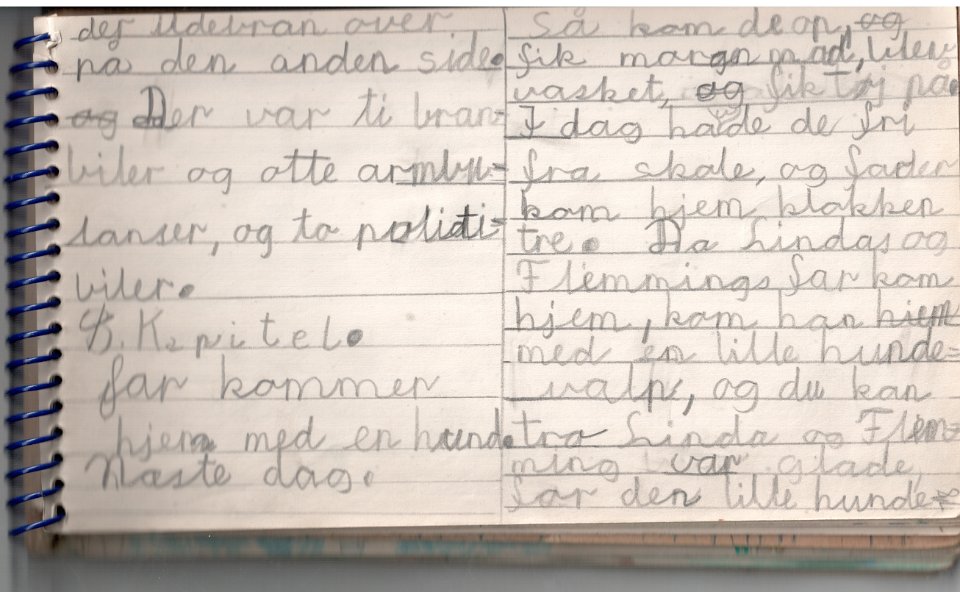 det Udebran over
på den anden side.
og Der var ti bran-
biler og otte armbu-
lanser, og to politi-
biler.
5. Kapitel.
far kommer
hjem med en hund.
Næste dag.
Så kom de op, og
fik morgn mad, blev
vasket, og fik tøj på.
I dag hade de fri
fra skole, og fader
kom hjem klokken
tre. Da Lindas og
Flemmings far kom
hjem, kom han hjem
med en lille hunde-
valp, og du kan
tro Linda og Flem-
ming var glade
for den lille hunde-